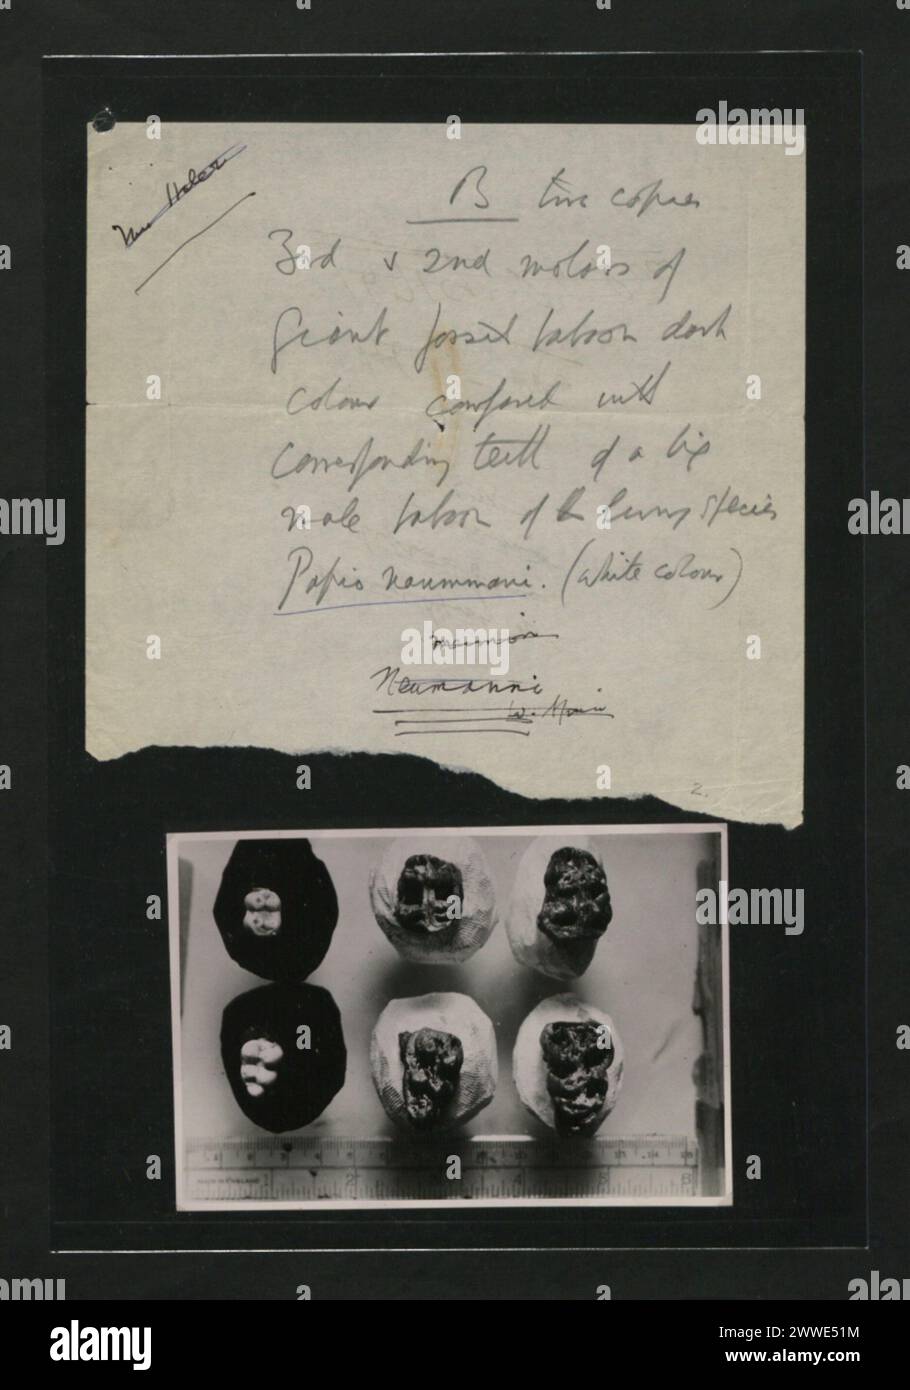 B two copies
3rd & 2nd molars of
Giant fossil baboon dark
colour compared with
corresponding teeth of a big
male baboon of the living species
Papio neummani. (white colour)
Neumanni
2.
MADE IN ENGLAND
alamy
Image ID: 2WWE51M
www.alamy.com